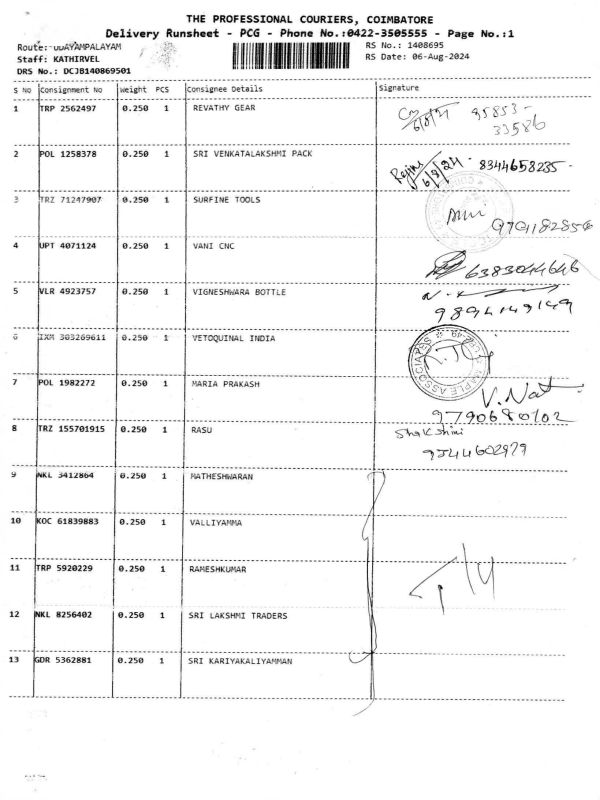 THE PROFESSIONAL COURIERS, COIMBATORE
Delivery Runsheet - PCG - Phone No.:0422-3505555 - Page No.:1
Route: UDAYAMPALAYAM
RS No.: 1408695
Staff: KATHIRVEL
RS Date: 06-Aug-2024
DRS No.: DCJB140869501
S No Consignment No Weight PCS Consignee Details Signature
1 TRP 2562497 0.250 1 REVATHY GEAR 6/8/24 85853-
33586
2 POL 1258378 0.250 1 SRI VENKATALAKSHMI PACK 6/8/24 8344658235
3 TRZ 71247907 0.250 1 SURFINE TOOLS
4 UPT 4071124 0.250 1 VANI CNC 6383044646
5 VLR 4923757 0.250 1 VIGNESHWARA BOTTLE
9894149149
6 IXM 303269611 0.250 1 VETOQUINAL INDIA
MAPLE ASSOCIATES
7 POL 1982272 0.250 1 MARIA PRAKASH V.Nat
9790680102
8 TRZ 155701915 0.250 1 RASU Shakshini
9544602979
9 NKL 3412864 0.250 1 MATHESHWARAN
10 KOC 61839883 0.250 1 VALLIYAMMA
11 TRP 5920229 0.250 1 RAMESHKUMAR
12 NKL 8256402 0.250 1 SRI LAKSHMI TRADERS
13 GDR 5362881 0.250 1 SRI KARIYAKALIYAMMAN